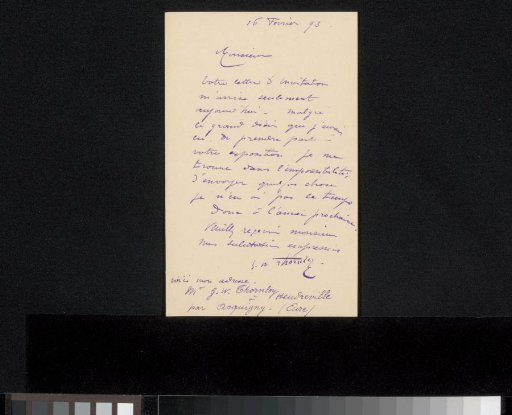 16 Fevrier 93.
Monsieur
Votre lettre d'invitation
m'arrive seulement
aujourd'hui. malgré
le grand désir que j'avais
eu de prendre part à
votre exposition je me
trouve dans l'impossibilité
d'envoyer quelque chose
je n'en ai pas le temps
Donc à l'année prochaine.
Veuillez recevoir monsieur
mes salutations empressées
G. W. Thornley.
voici mon adresse.
Mr G. W. Thornley
à Heudreville
par Acquigny. (Eure)